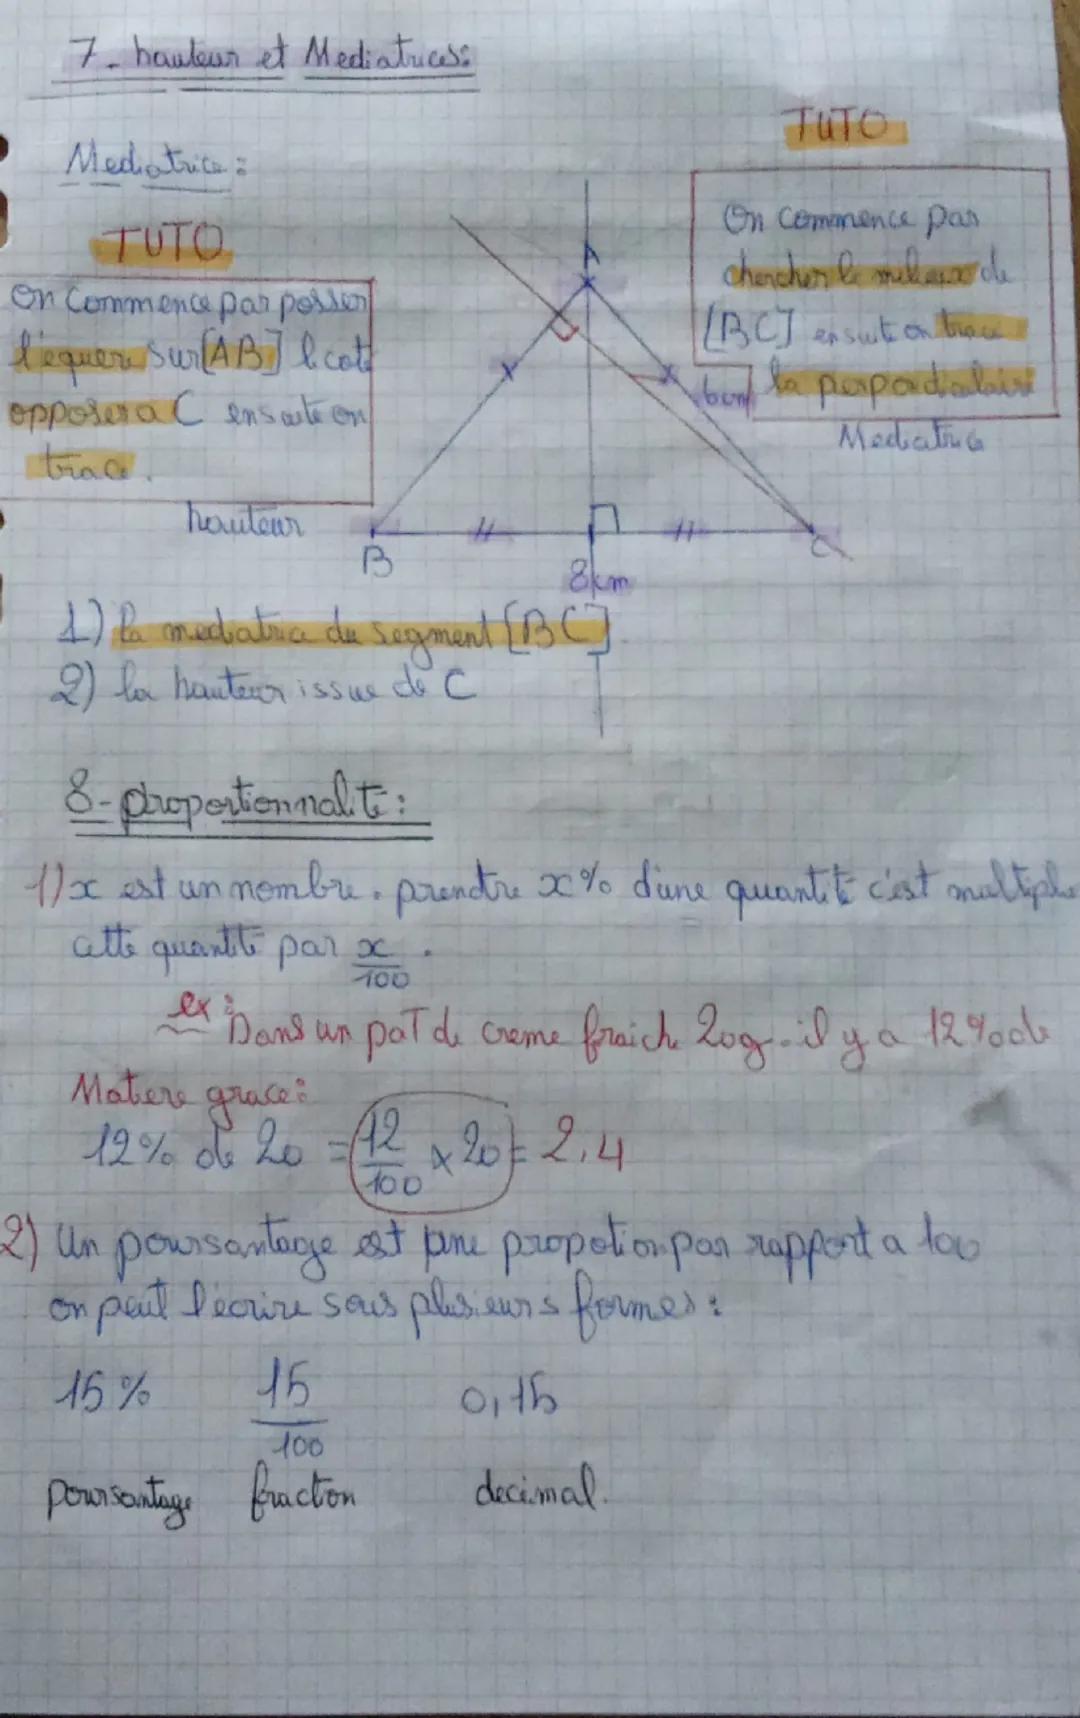 7. hauteur et Mediatrices:
TUTO
Mediatrice:
TUTO
On commence par posser
l'equere sur [AB] le coté
opposer a C ensuite on
trace.
hauteur
On commence par
chercher le milieux de
[BC] ensuite on trace
la perpendiculaire
Mediatrice
A
6cm
B
C
8cm
1) la mediatrice du segment [BC]
2) la hauteur issue de C
8-proportionnalité:
1) x est un nombre. prendre x% d'une quantité c'est multiplie
cette quantité par x/100.
ex: Dans un pot de creme fraiche 20g. il y a 12% de
Matiere grace:
12% de 20 = 12/100 x 20 = 2,4
2) Un poursantage est une propotion par rapport a 100
on peut l'écrire sous plusieurs formes:
15% 15/100 0,15
poursantage fraction decimal.